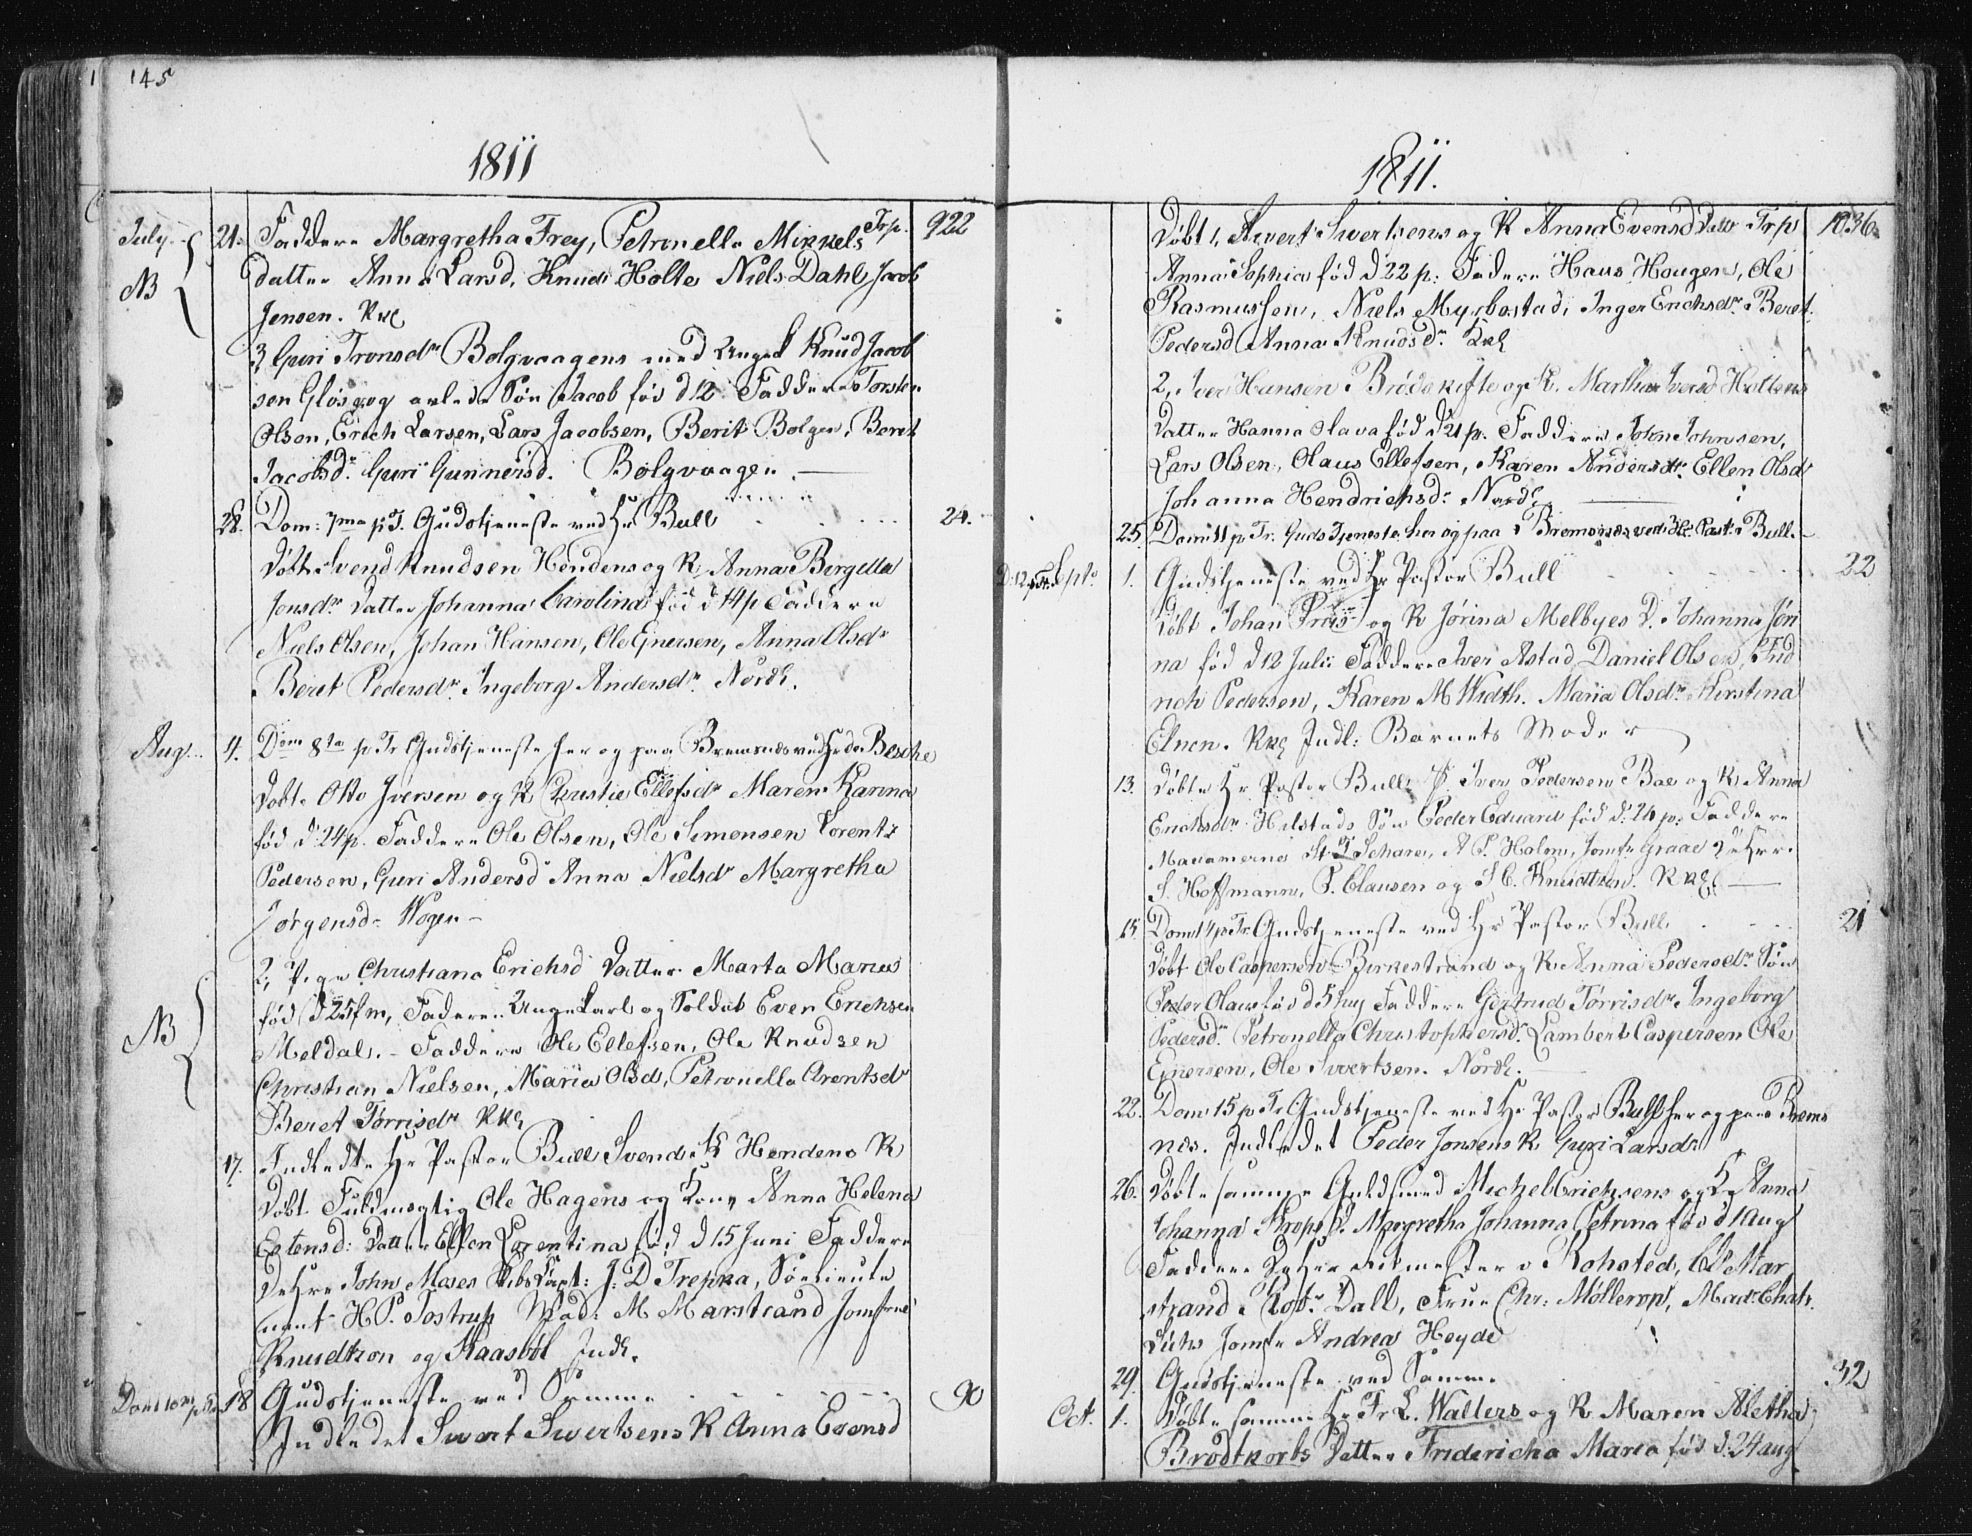 145
1811
July. 21. Faddere Margretha Frey, Petronella Mikkels Trp. 922
NB datter Anna Larsd, Knud Holte Niels Dahl, Jacob
Jensen. Kxl
3, Guri Tronsdr Bolgvaagens med Ungk Knud Jacob
sen Gløsvog avlede Søn Jacob fød d 12 Faddere Torsten
Olsen, Erich Larsen, Lars Jacobsen, Berit Bolgen, Beret
Jacobsdr. Guri Gunnersd. Bolgvaagen.
28. Dom: 7me p T. Gudstjeneste ved Hr Bull 24.
Døbt Svend Knudsen Hendens og K. Anna Bergella
Jonsdr Datter Johanna Carolina fød d 14 p Faddere
Niels Olsen, Johan Hansen, Ole Ejnersen, Anna Olsdr
Beret Pedersdr. Ingeborg Andersdr. Nordl.
Aug. 4. Dom 8de p Tr Gudstjeneste her og paa Bremsnes ved Hr de Besche
Døbt Otto Iversen og K Christie Ellefsdr Maren Karina
fød d 24 p. Faddere Ole Olsen, Ole Simonsen Lorentz
Pedersen, Guri Andersd Anna Nielsdr Margretha
Jørgensdr Wogen
NB 2, Pige Christiana Erichsd Datter Marta Maria
fød d 25 f m, Faderen Ungekarl og Soldat Even Erichsen
Meldal. Faddere Ole Ellefsen, Ole Knudsen
Christian Nielsen, Maria Olsd, Petronella Arentsdr
Beret Tørrisdr Kxl
17. Indledte Hr Pastor Bull Svend K Hendens K
Døbt Fuldmægtig Ole Hagens og Kone Anna Helena
Estensd: Datter Ellen Lorentina fød d 15 Juni Faddere
DeHrr John Moses Capt: J. D Trepka, Sølieute
nant H P. Tostrup Mad. M Marstrand Jomfrue
Knudtzon og Kaasbøl Indl.
Dom 10 p Tr 18 Gudstjeneste ved Samme 90
Indledet Sivert Sivertsens K Anna Evensd
1811.
Døbt 1, Sivert Sivertsens og K Anna Evensd Datter Trp 1036
Anna Sophia fød d 22 p. Faddere Hans Hougen, Ole
Rasmussen, Niels Myrbostad, Inger Erichsdr. Beret
Pedersd Anna Knudsdr. Kxl
2, Iver Hansen Brødskifte og K. Martha Iversd Holtens
Datter Hanna Olava fød d 21 p. Faddere John Johnsen,
Lars Olsen, Olaus Ellefsen, Karen Andersdr. Ellen Olsd
Johanna Hendrichsdr. Nordl.
25. Dom 11 p. Tr. Gudstjeneste her og paa Bremsnes ved Hr Past. Bull.
D: 12 p Tr. Septr 1. Gudstjeneste ved Hr Pastor Bull 22
Døbt Johan og K Jørina Melbyes D. Johanna Jøri
na fød d 12 Julii Faddere Iver Astad, Daniel Olsen, Frid
rich Pedersen, Karen M Width. Maria Olsdr. Kirstina
Elnen. Kxl Indl: Barnets Moder
13. Døbte Hr Pastor Bull P. Iver Pedersen Bae og K Anna
Erichsdr Hilstads Søn Peder Eduard fød d. 26 p. Faddere
Madamerne Schare, A P. Holm, Jomfr Graae DeHrr.
S. Hoffmann, P. Clausen og S C. Knudtzon. Kxl
15. Dom 14 p Tr. Gudstjeneste ved Hr Pastor Bull 21
Døbt Ole Caspersen Birkestrand og K Anna Pedersdr. Søn
Peder Olaus fød d 5 huj Faddere Gertrud Tørrisdr Ingeborg
Pedersdr. Petronella Christophersdr. Lambert Caspersen Ole
Ejnersen, Ole Sivertsen. Nordl.
22. Dom 15 p Tr Gudstjeneste ved Hr Pastor Bull her og paa Brems
nes. Indledet Peder Jonsens K. Guri Larsdr
26. Døbte samme Guldsmed Michel Erichsens og K. Anna
Johanna Krops D. Margretha Johanna Petrina fød d 1 Aug
Faddere DeHrr Ritmester v Rohsted, Mar
strand Dall, Frue Chr: Møllerop, Madr. Chatr.
Jomfr Andrea Heyde
29. Gudstjeneste ved Samme 32
Oct. 1. Døbte samme Hr Fr L. Walters og K Maren Aletha
Brodtkorbs Datter Fridericha Maria fød d. 24 aug